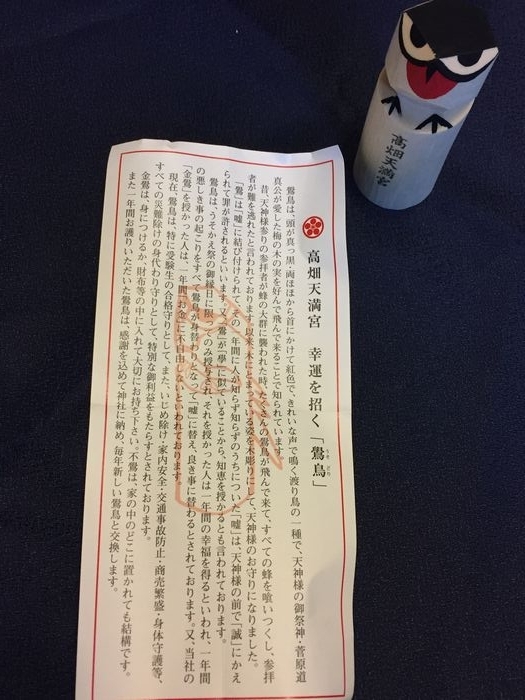 高畑天満宮
高畑天満宮　幸運を招く「鷽鳥」
うそどり
鷽鳥は、頭が真っ黒、両ほほから首にかけて紅色で、きれいな声で鳴く、渡り鳥の一種で、天神様の御祭神・菅原道
真公が愛した梅の木の実を好んで飛んで来ることで知られています。
昔、天神様参りの参拝者が蜂の大群に襲われた時、たくさんの鷽鳥が飛んで来て、すべての蜂を喰いつくし、参拝
者が難を逃れたと言われております。以来、木にとまっている姿を木彫りにして、天神様のお守りになりました。
「鷽」は「嘘」に結び付けられ、その一年間に人が知らず知らずのうちについた「嘘」は、天神様の前で「誠」にかえ
られて罪が許されるといいます。又、「鷽」が「學」に似ていることから、知恵を授かるとも言われております。
鷽鳥は、うそかえ祭の御縁日に限ってのみ授与され、それを授かった人は一年間の幸福を得るといわれ、一年間
の悪しき事の起こりをすべて鷽鳥が身替わりとなって「嘘」に替え、良き事に替わるとされております。又、当社の
「金鷽」を授かった人は、一年間「お金」に不自由しないといわれております。
現在、鷽鳥は、特に受験生の合格守りとして、また、いじめ除け・家内安全・交通事故防止・商売繁盛・身体守護等、
すべての災難除けの身代わり守りとして、特別な御利益をもたらすとされております。
金鷽は、身につけるか、財布等の中に入れて大切にお持ち下さい。木鷽は、家の中のどこに置かれても結構です。
また一年間お護りいただいた鷽鳥は、感謝を込めて神社に納め、毎年新しい鷽鳥と交換します。